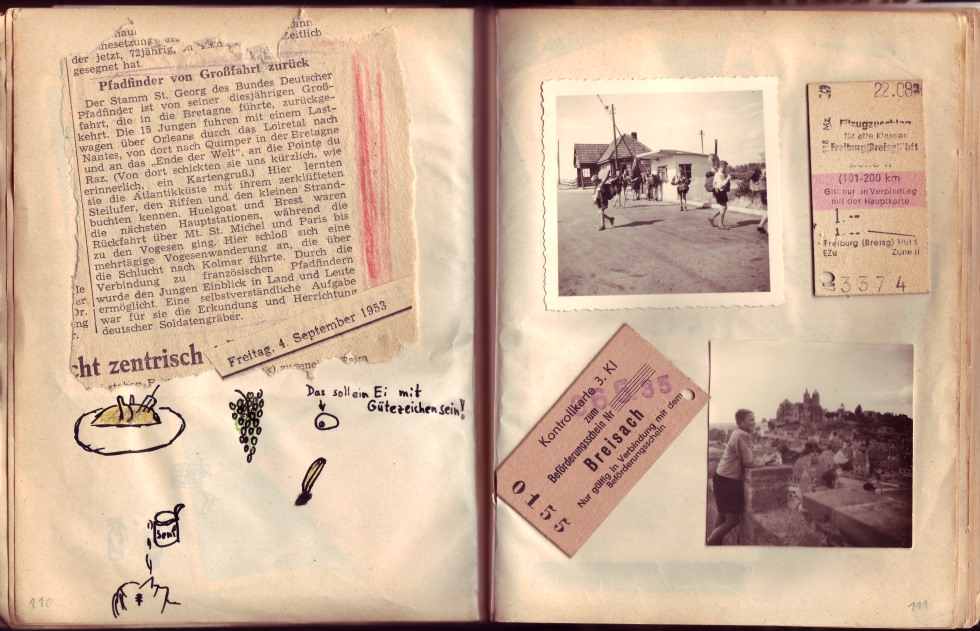 hau
der jetzt, 72jährig,
gesegnet hat.
zeitlich
Pfadfinder von Großfahrt zurück
Der Stamm St. Georg des Bundes Deutscher
Pfadfinder ist von seiner diesjährigen Groß-
fahrt, die in die Bretagne führte, zurückge-
kehrt. Die 15 Jungen fuhren mit einem Last-
wagen über Orleans durch das Loiretal nach
Nantes, von dort nach Quimper in der Bretagne
und an das „Ende der Welt", an die Pointe du
Raz. (Von dort schickten sie uns kürzlich, wie
erinnerlich, ein Kartengruß.) Hier lernten
sie die Atlantikküste mit ihrem zerklüfteten
Steilufer, den Riffen und den kleinen Strand-
buchten kennen. Huelgoat und Brest waren
die nächsten Hauptstationen, während die
Rückfahrt über Mt. St. Michel und Paris bis
zu den Vogesen ging. Hier schloß sich eine
mehrtägige Vogesenwanderung an, die über
die Schlucht nach Kolmar führte. Durch die
Verbindung zu französischen Pfadfindern
wurde den Jungen Einblick in Land und Leute
ermöglicht. Eine selbstverständliche Aufgabe
war für sie die Erkundung und Herrichtung
deutscher Soldatengräber.
cht zentrisch
Freitag, 4. September 1953
Das soll ein Ei mit
Gütezeichen sein!
Senf
110
22.08
Eilzugzuschlag
für alle Klassen
Freiburg (Breisg) Hbf
Zone II
(101-200 km
Gilt nur in Verbindung
mit der Hauptkarte
1.--
1.--
Freiburg (Breisg) Hbf 1
EZu Zone II
3374
Kontrollkarte 3. Kl
zum
Beförderungsschein Nr
Breisach
Nur gültig in Verbindung mit dem
Beförderungsschein
0155
111